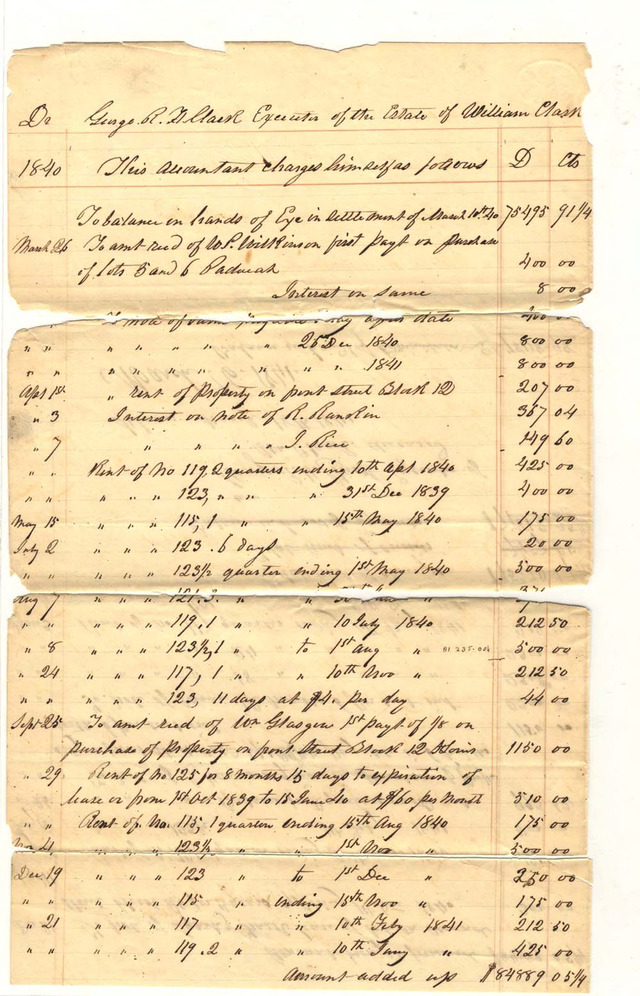 Dr George R. H. Clark Executor of the Estate of William Clark
1840 This accountant charges himself as follows D Cts
To balance in hands of Exe in settlement of March 10th 40 75495 91 1/4
March 26 To amt recd of W. P. Wilkinson first payt on purchase
of lots 5 and 6 Paducah 400 00
Interest on same 8 00
" " " note of same date 400 00
" " " " " " " " 25 Dec 1840 800 00
" " " " " " " " 1841 800 00
Apl 1st " rent of property on front street Block 12 207 00
" 3 Interest on note of R. Rankin 367 04
" 7 " " " " J. Rice 149 60
" " Rent of No 119. 2 quarters ending 10th Apl 1840 425 00
" " " " " 123, " " " 31st Dec 1839 400 00
May 15 " " " 115, 1 " " 15th May 1840 175 00
July 2 " " " 123. 6 days 20 00
" " " " " 123 1/2 quarter ending 1st May 1840 500 00
Aug 7 " " " 121. 3. " "
" " " " " 119. 1 " " 10 July 1840 212 50
" 8 " " " 123 1/2, 1 " to 1st Aug " 81 235-004 500 00
" 24 " " " 117, 1 " " 10th Nov " 212 50
" " " " " 123, 11 days at $4. per day 44 00
Sept 25 To amt recd of Wm Glasgow 1st payt of 1/8 on
purchase of property on front street Block 12 St Louis 1150 00
" 29 Rent of No 125 for 8 months 15 days to expiration of
lease or from 1st Oct 1839 to 15 June 40 at $60 per month 510 00
" " Rent of No. 115, 1 quarter ending 15th Aug 1840 175 00
Nov 21 " " " 123 1/2 " " 1st Nov " 500 00
Dec 19 " " " 123 " to 1st Dec " 250 00
" " " " " 115 " ending 15th Nov " 175 00
" 21 " " " 117 " " 10th Feby 1841 212 50
" " " " " 119. 2 " " 10th Jany " 425 00
Amount added up $84889 05 1/4